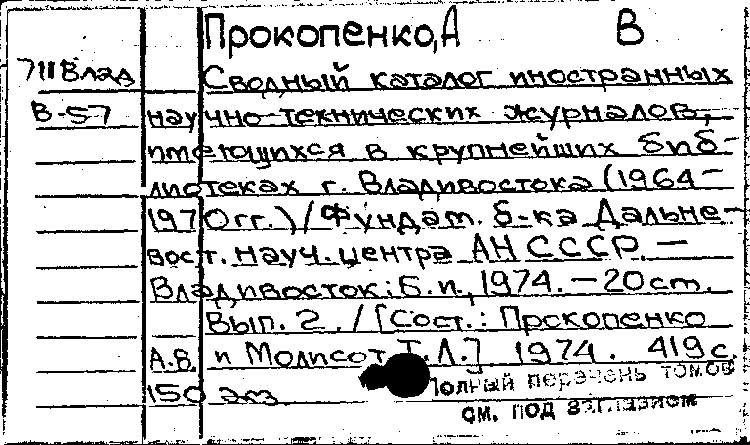 Прокопенко, А В
711 Влад Сводный каталог иностранных
В-57 научно-технических журналов,
имеющихся в крупнейших биб-
лиотеках г. Владивостока (1964-
1970гг.)/Фундам. б-ка Дальне-
вост. науч. центра АН СССР. —
Владивосток: Б.и., 1974. — 20 см.
Вып. 2. / [Сост.: Прокопенко
А.В. и Молисот Т.Л.] 1974. 419 с.
150 экз. Полный перечень томов
см. под заглавием